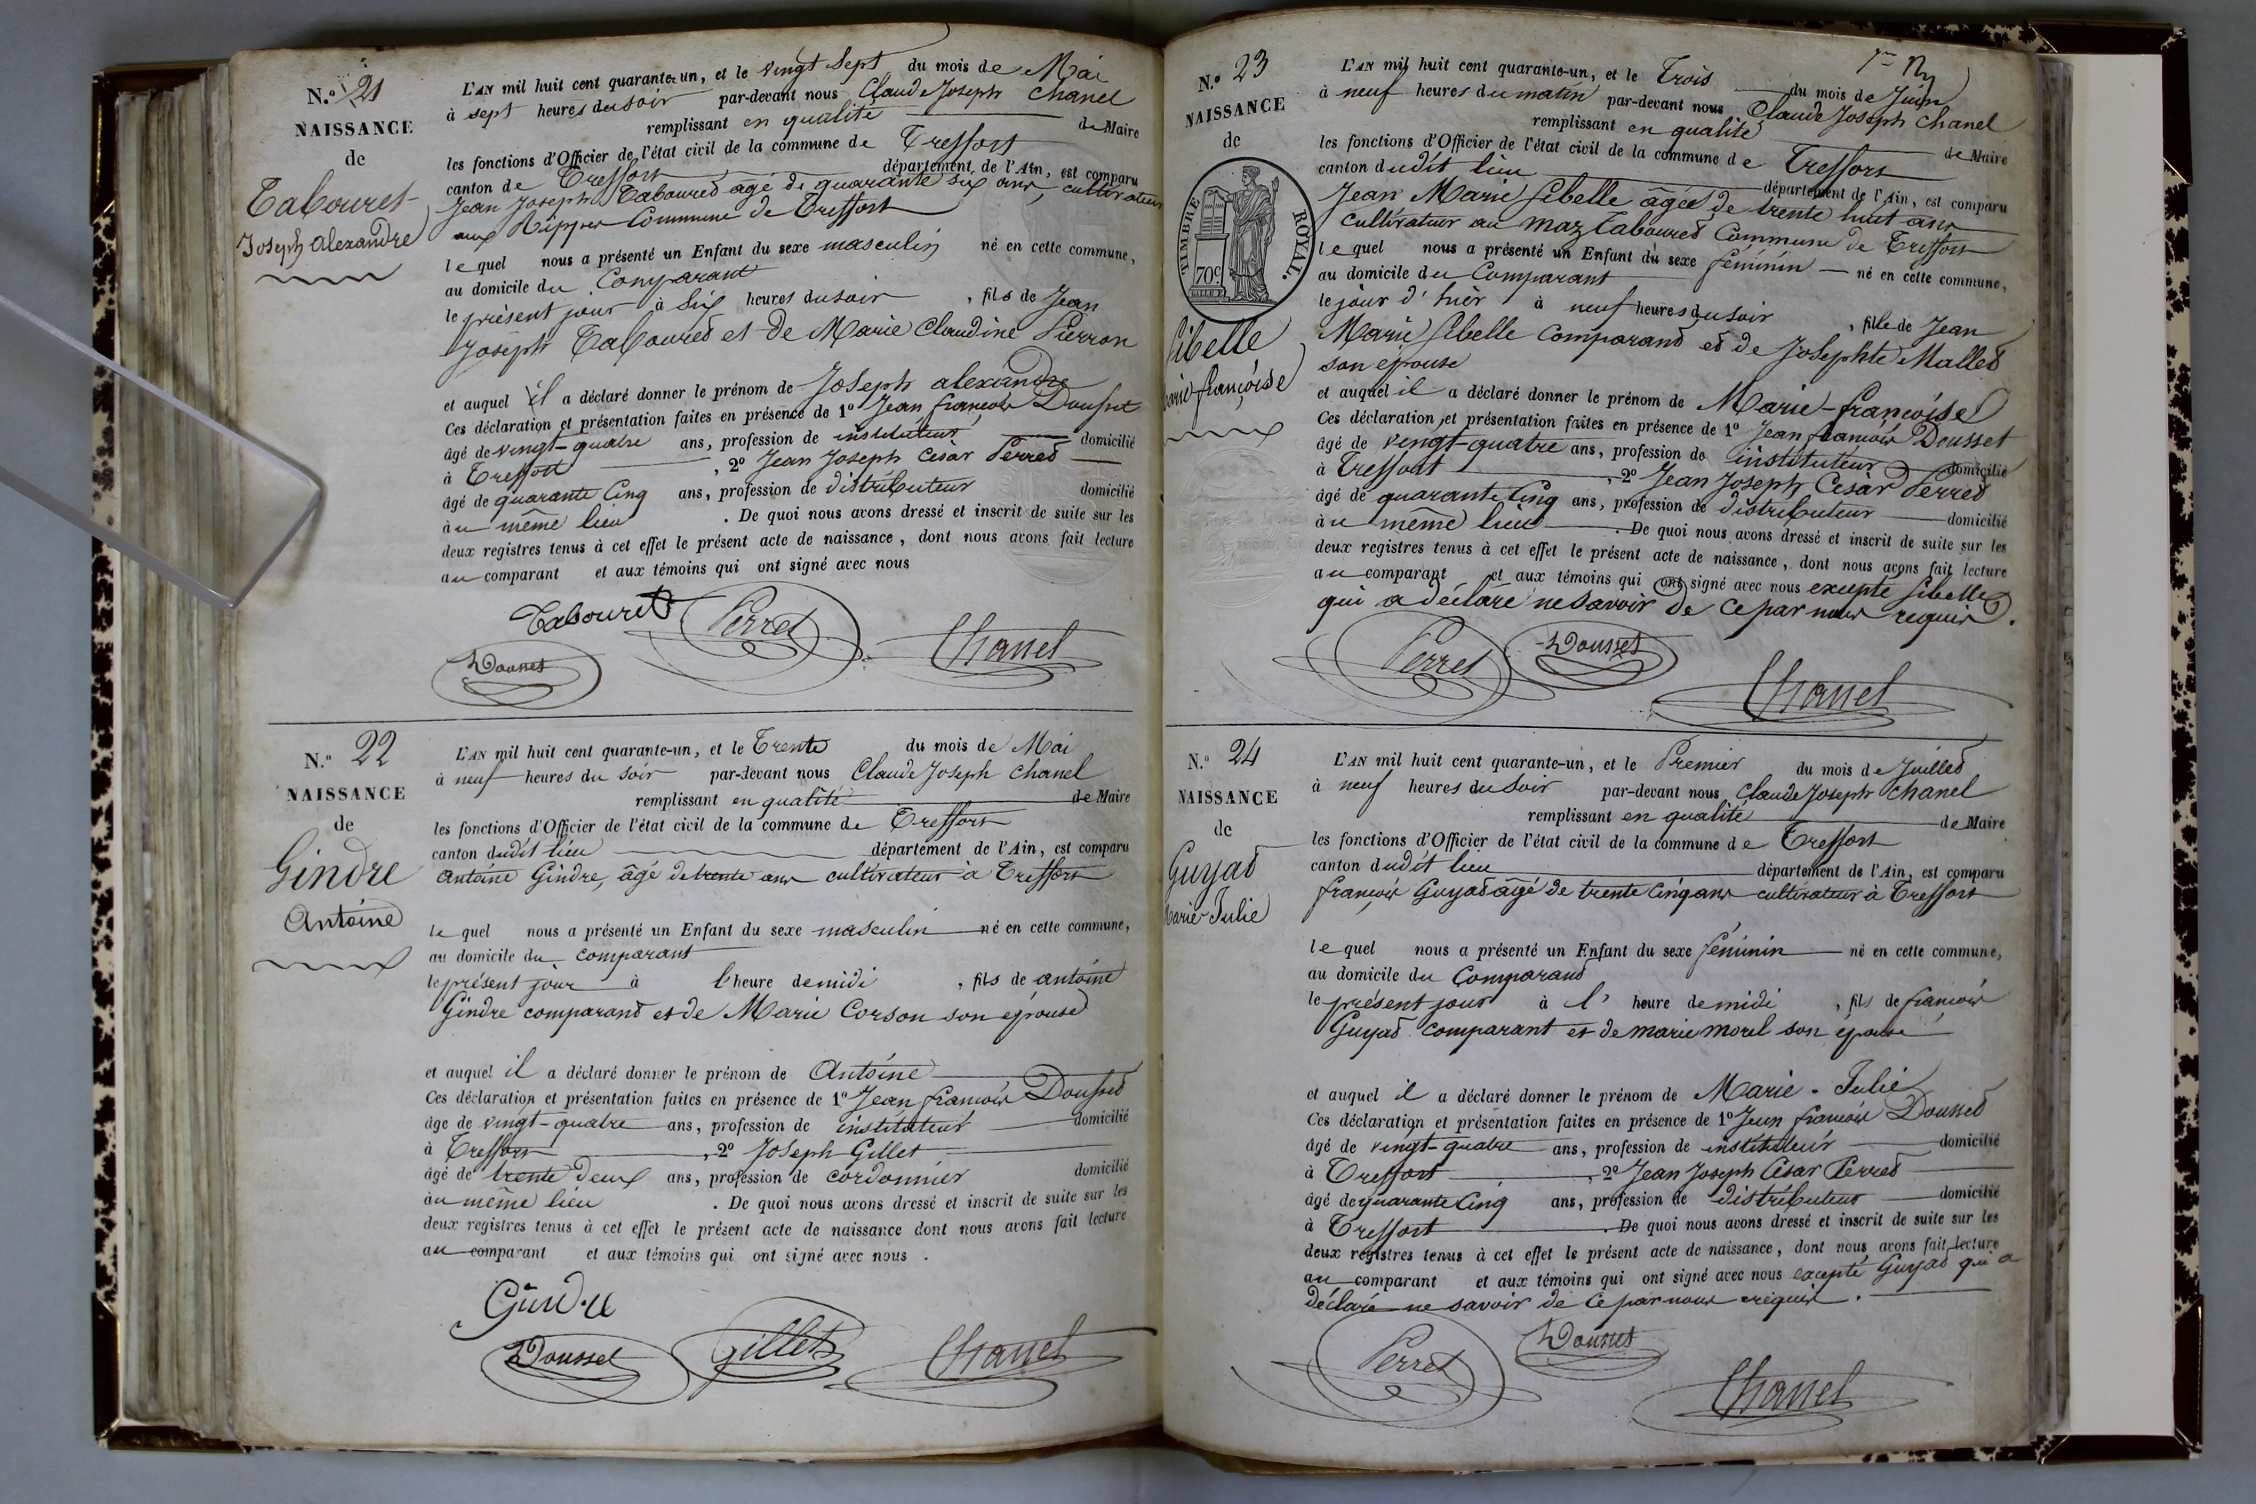 N.º 21
NAISSANCE
de
Tabouret
Joseph alexandre
L'AN mil huit cent quarante-un, et le vingt Sept du mois de Mai
à sept heures du soir par-devant nous Claude Joseph Chanel
remplissant en qualité de Maire
les fonctions d'Officier de l'état civil de la commune de Treffort
canton de Treffort département de l'Ain, est comparu
Jean Joseph Tabouret agé de quarante six ans, cultivateur
aux Rippes Commune de Treffort
le quel nous a présenté un Enfant du sexe masculin né en cette commune,
au domicile du Comparant
le présent jour à Six heures du soir, fils de Jean
Joseph Tabouret et de Marie Claudine Pierron
et auquel il a déclaré donner le prénom de Joseph alexandre
Ces déclaration et présentation faites en présence de 1º Jean françois Dousset
âgé de vingt-quatre ans, profession de instituteur domicilié
à Treffort, 2º Jean Joseph Cesàr Perret
âgé de quarante Cinq ans, profession de distributeur domicilié
au même lieu. De quoi nous avons dressé et inscrit de suite sur les
deux registres tenus à cet effet le présent acte de naissance, dont nous avons fait lecture
au comparant et aux témoins qui ont signé avec nous
Tabouret Perret Chanel
Dousset
N.º 22
NAISSANCE
de
Gindre
Antoine
L'AN mil huit cent quarante-un, et le Trente du mois de Mai
à neuf heures du soir par-devant nous Claude Joseph Chanel
remplissant en qualité de Maire
les fonctions d'Officier de l'état civil de la commune de Treffort
canton dudit lieu département de l'Ain, est comparu
Antoine Gindre, âgé de trente ans cultivateur à Treffort
le quel nous a présenté un Enfant du sexe masculin né en cette commune,
au domicile du comparant
le présent jour à l'heure de midi, fils de antoine
Gindre comparant et de Marie Corson son épouse
et auquel il a déclaré donner le prénom de Antoine
Ces déclaration et présentation faites en présence de 1º Jean françois Dousset
âge de vingt-quatre ans, profession de instituteur domicilié
à Treffort, 2º Joseph Gillet
âgé de trente deux ans, profession de cordonnier domicilié
au même lieu. De quoi nous avons dressé et inscrit de suite sur les
deux registres tenus à cet effet le présent acte de naissance dont nous avons fait lecture
au comparant et aux témoins qui ont signé avec nous.
Gindre
Dousset Gillet Chanel
N.º 23
NAISSANCE
de
TIMBRE ROYAL.
70c
Sibelle
Marie françoise
L'AN mil huit cent quarante-un, et le Trois du mois de Juin
à neuf heures du matin par-devant nous Claude Joseph Chanel
remplissant en qualité de Maire
les fonctions d'Officier de l'état civil de la commune de Treffort
canton dudit lieu département de l'Ain, est comparu
Jean Marie Sibelle âgé de trente huit ans
cultivateur au maz Tabouret Commune de Treffort
le quel nous a présenté un Enfant du sexe féminin né en cette commune,
au domicile du Comparant
le jour d'hièr à neuf heures du soir, fille de Jean
Marie Sibelle comparant et de Josephte Mallet
son épouse
et auquel il a déclaré donner le prénom de Marie-françoise
Ces déclaration et présentation faites en présence de 1º Jean françois Dousset
âgé de vingt-quatre ans, profession de instituteur domicilié
à Treffort, 2º Jean Joseph Cesàr Perret
âgé de quarante Cinq ans, profession de distributeur domicilié
au même lieu. De quoi nous avons dressé et inscrit de suite sur les
deux registres tenus à cet effet le présent acte de naissance, dont nous avons fait lecture
au comparant et aux témoins qui ont signé avec nous excepté Sibelle
qui a déclaré ne savoir de ce par nous requis.
Perret Dousset
Chanel
N.º 24
NAISSANCE
de
Guyat
Marie Julie
L'AN mil huit cent quarante-un, et le Premier du mois de Juillet
à neuf heures du Soir par-devant nous Claude Joseph Chanel
remplissant en qualité de Maire
les fonctions d'Officier de l'état civil de la commune de Treffort
canton dudit lieu département de l'Ain, est comparu
françois Guyat âgé de trente Cinq ans cultivateur à Treffort
le quel nous a présenté un Enfant du sexe féminin né en cette commune,
au domicile du Comparant
le présent jour à l' heure de midi, fils de françois
Guyat comparant et de marie morel son épouse
et auquel il a déclaré donner le prénom de Marie-Julie
Ces déclaration et présentation faites en présence de 1º Jean françois Dousset
âgé de vingt-quatre ans, profession de instituteur domicilié
à Treffort, 2º Jean Joseph César Perret
âgé de quarante Cinq ans, profession de distributeur domicilié
à Treffort. De quoi nous avons dressé et inscrit de suite sur les
deux registres tenus à cet effet le présent acte de naissance, dont nous avons fait lecture
au comparant et aux témoins qui ont signé avec nous excepté Guyat qui a
déclaré ne savoir de ce par nous requis.
Perret Dousset
Chanel